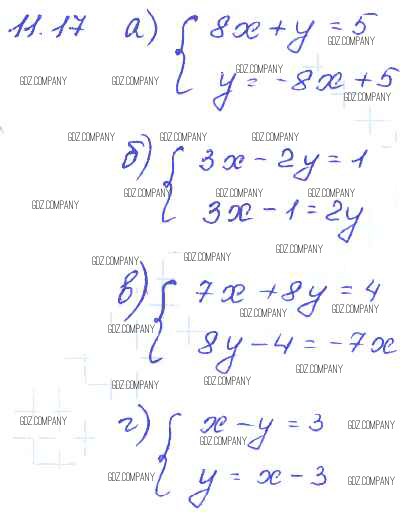 11.17 а) { 8x + y = 5
GDZ.COMPANY
y = -8x + 5
GDZ.COMPANY
GDZ.COMPANY GDZ.COMPANY
GDZ.COMPANY
GDZ.COMPANY GDZ.COMPANY GDZ.COMPANY
б) { 3x - 2y = 1
GDZ.COMPANY GDZ.COMPANY GDZ.COMPANY
GDZ.COMPANY
3x - 1 = 2y
GDZ.COMPANY
GDZ.COMPANY GDZ.COMPANY
в) { 7x + 8y = 4
GDZ.COMPANY GDZ.COMPANY
GDZ.COMPANY
8y - 4 = -7x
GDZ.COMPANY
GDZ.COMPANY GDZ.COMPANY
г) { x - y = 3
GDZ.COMPANY GDZ.COMPANY
GDZ.COMPANY
y = x - 3
GDZ.COMPANY GDZ.COMPANY